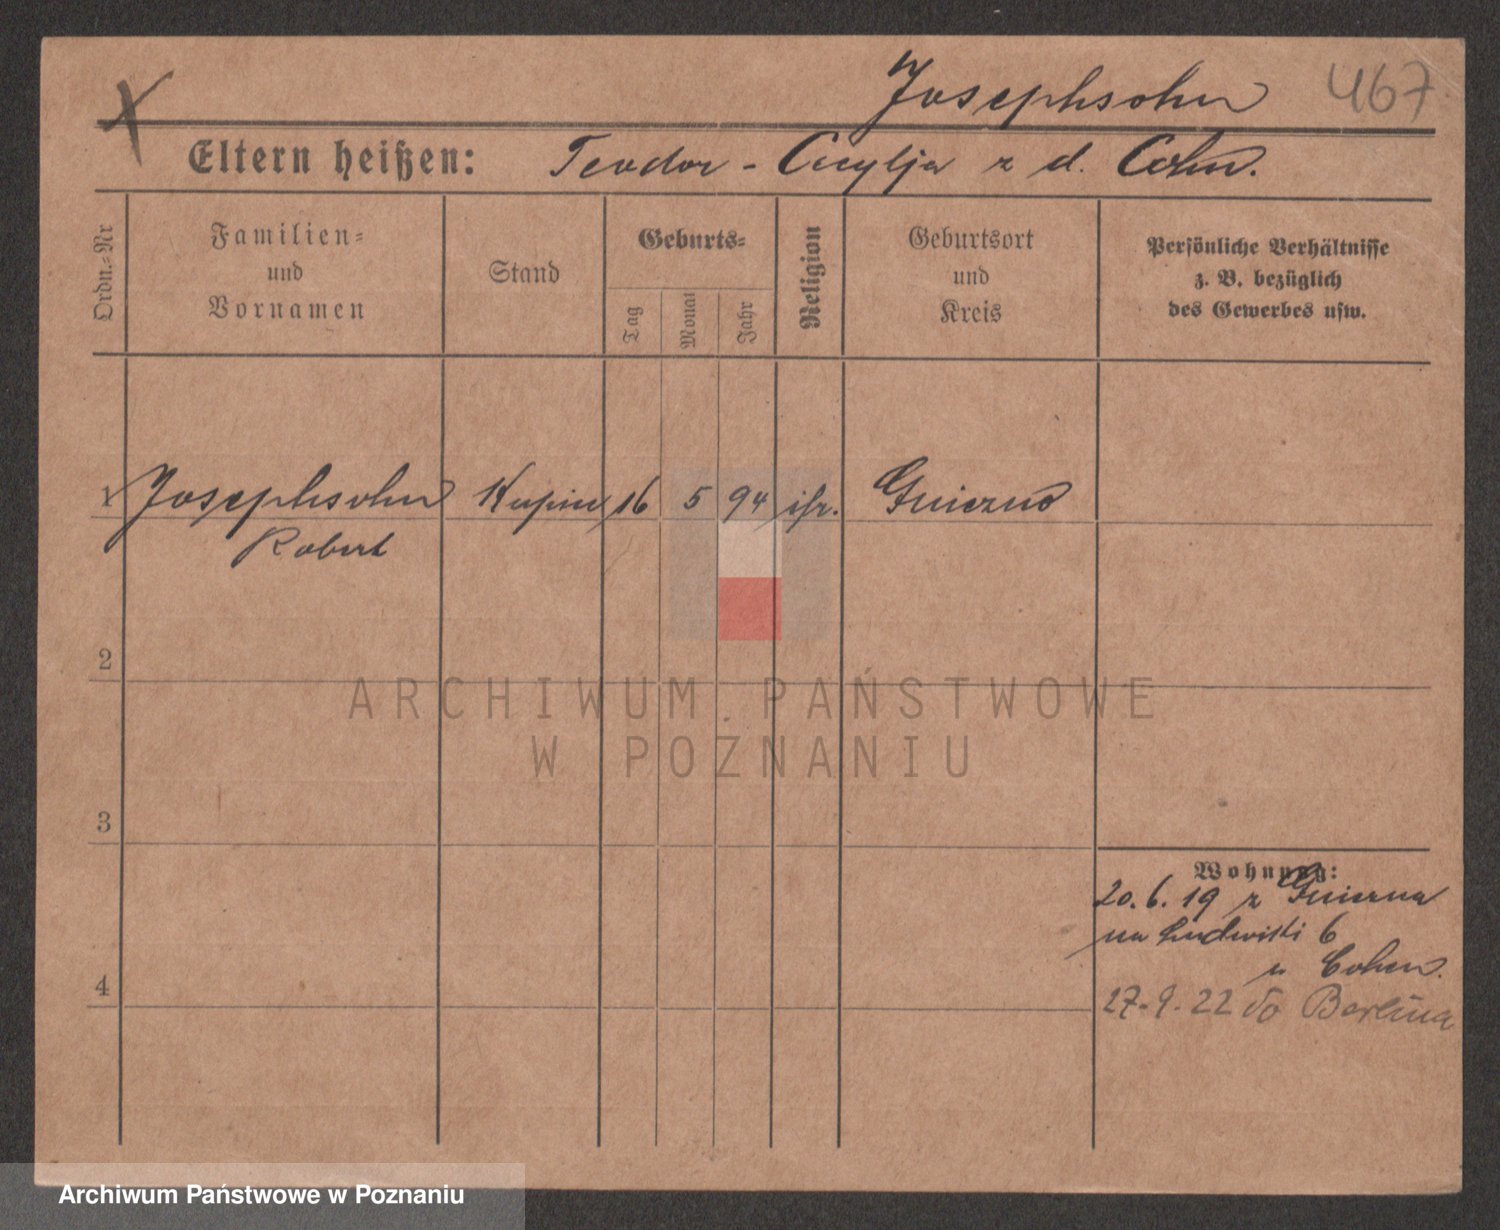 Josephsohn 467
Eltern heißen: Teodor - Cecylja z d. Cohn.
Ordn.=Nr
Familien=
und
Vornamen
Stand
Geburts=
Tag
Monat
Jahr
Religion
Geburtsort
und
Kreis
Persönliche Verhältnisse
z. B. bezüglich
des Gewerbes usw.
1 Josephsohn Kupiec 16 5 94 isr. Gniezno
Robert
2
ARCHIWUM PAŃSTWOWE
W POZNANIU
3
Wohnung:
20. 6. 19 z Gniezna
na 6
u Cohn.
4
27-9-22 do Berlina
Archiwum Państwowe w Poznaniu